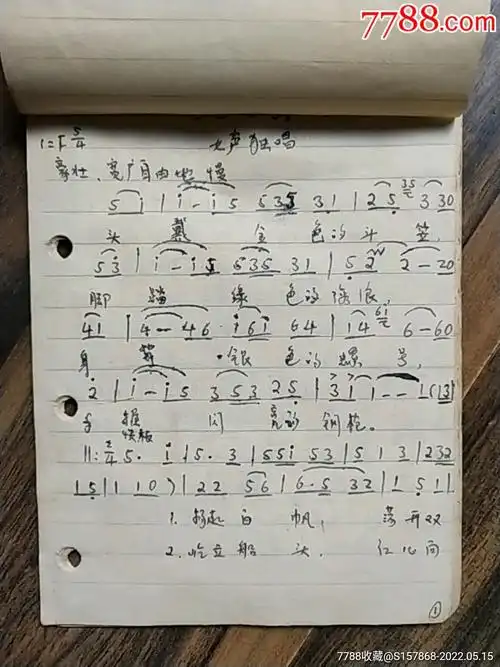 7788.com
1=F 5/4 女声独唱
豪壮、宽广自由地 慢
5 i | i - i 5 5 3 5 3 1 | 2 5 3 3 0
头 戴 金 色的 斗 笠,
5 3 | i - i 5 5 3 5 3 1 | 5 2 2 - 2 0
脚 踏 绿 色的 海浪,
4 1 | 4 - 4 6 · i 6 i 6 4 | 1 4 6 - 6 0
身 银 色的 螺 号,
2 | i - i 5 3 5 3 2 5 | 3 1 1 - - 1 (13)
手 握 闪 亮的 钢枪。
快板
||: 2/4 5 · i | 5 · 3 | 5 5 i 5 3 | 5 1 3 | 2 3 2
1 5 | 1 1 0 ) | 2 2 5 6 | 6 · 5 3 2 | 1 5 1 |
1. 扬起 白 帆, 荡开 双
2. 屹立 船 头, 红心 向
1
7788收藏@S157868-2022.05.15